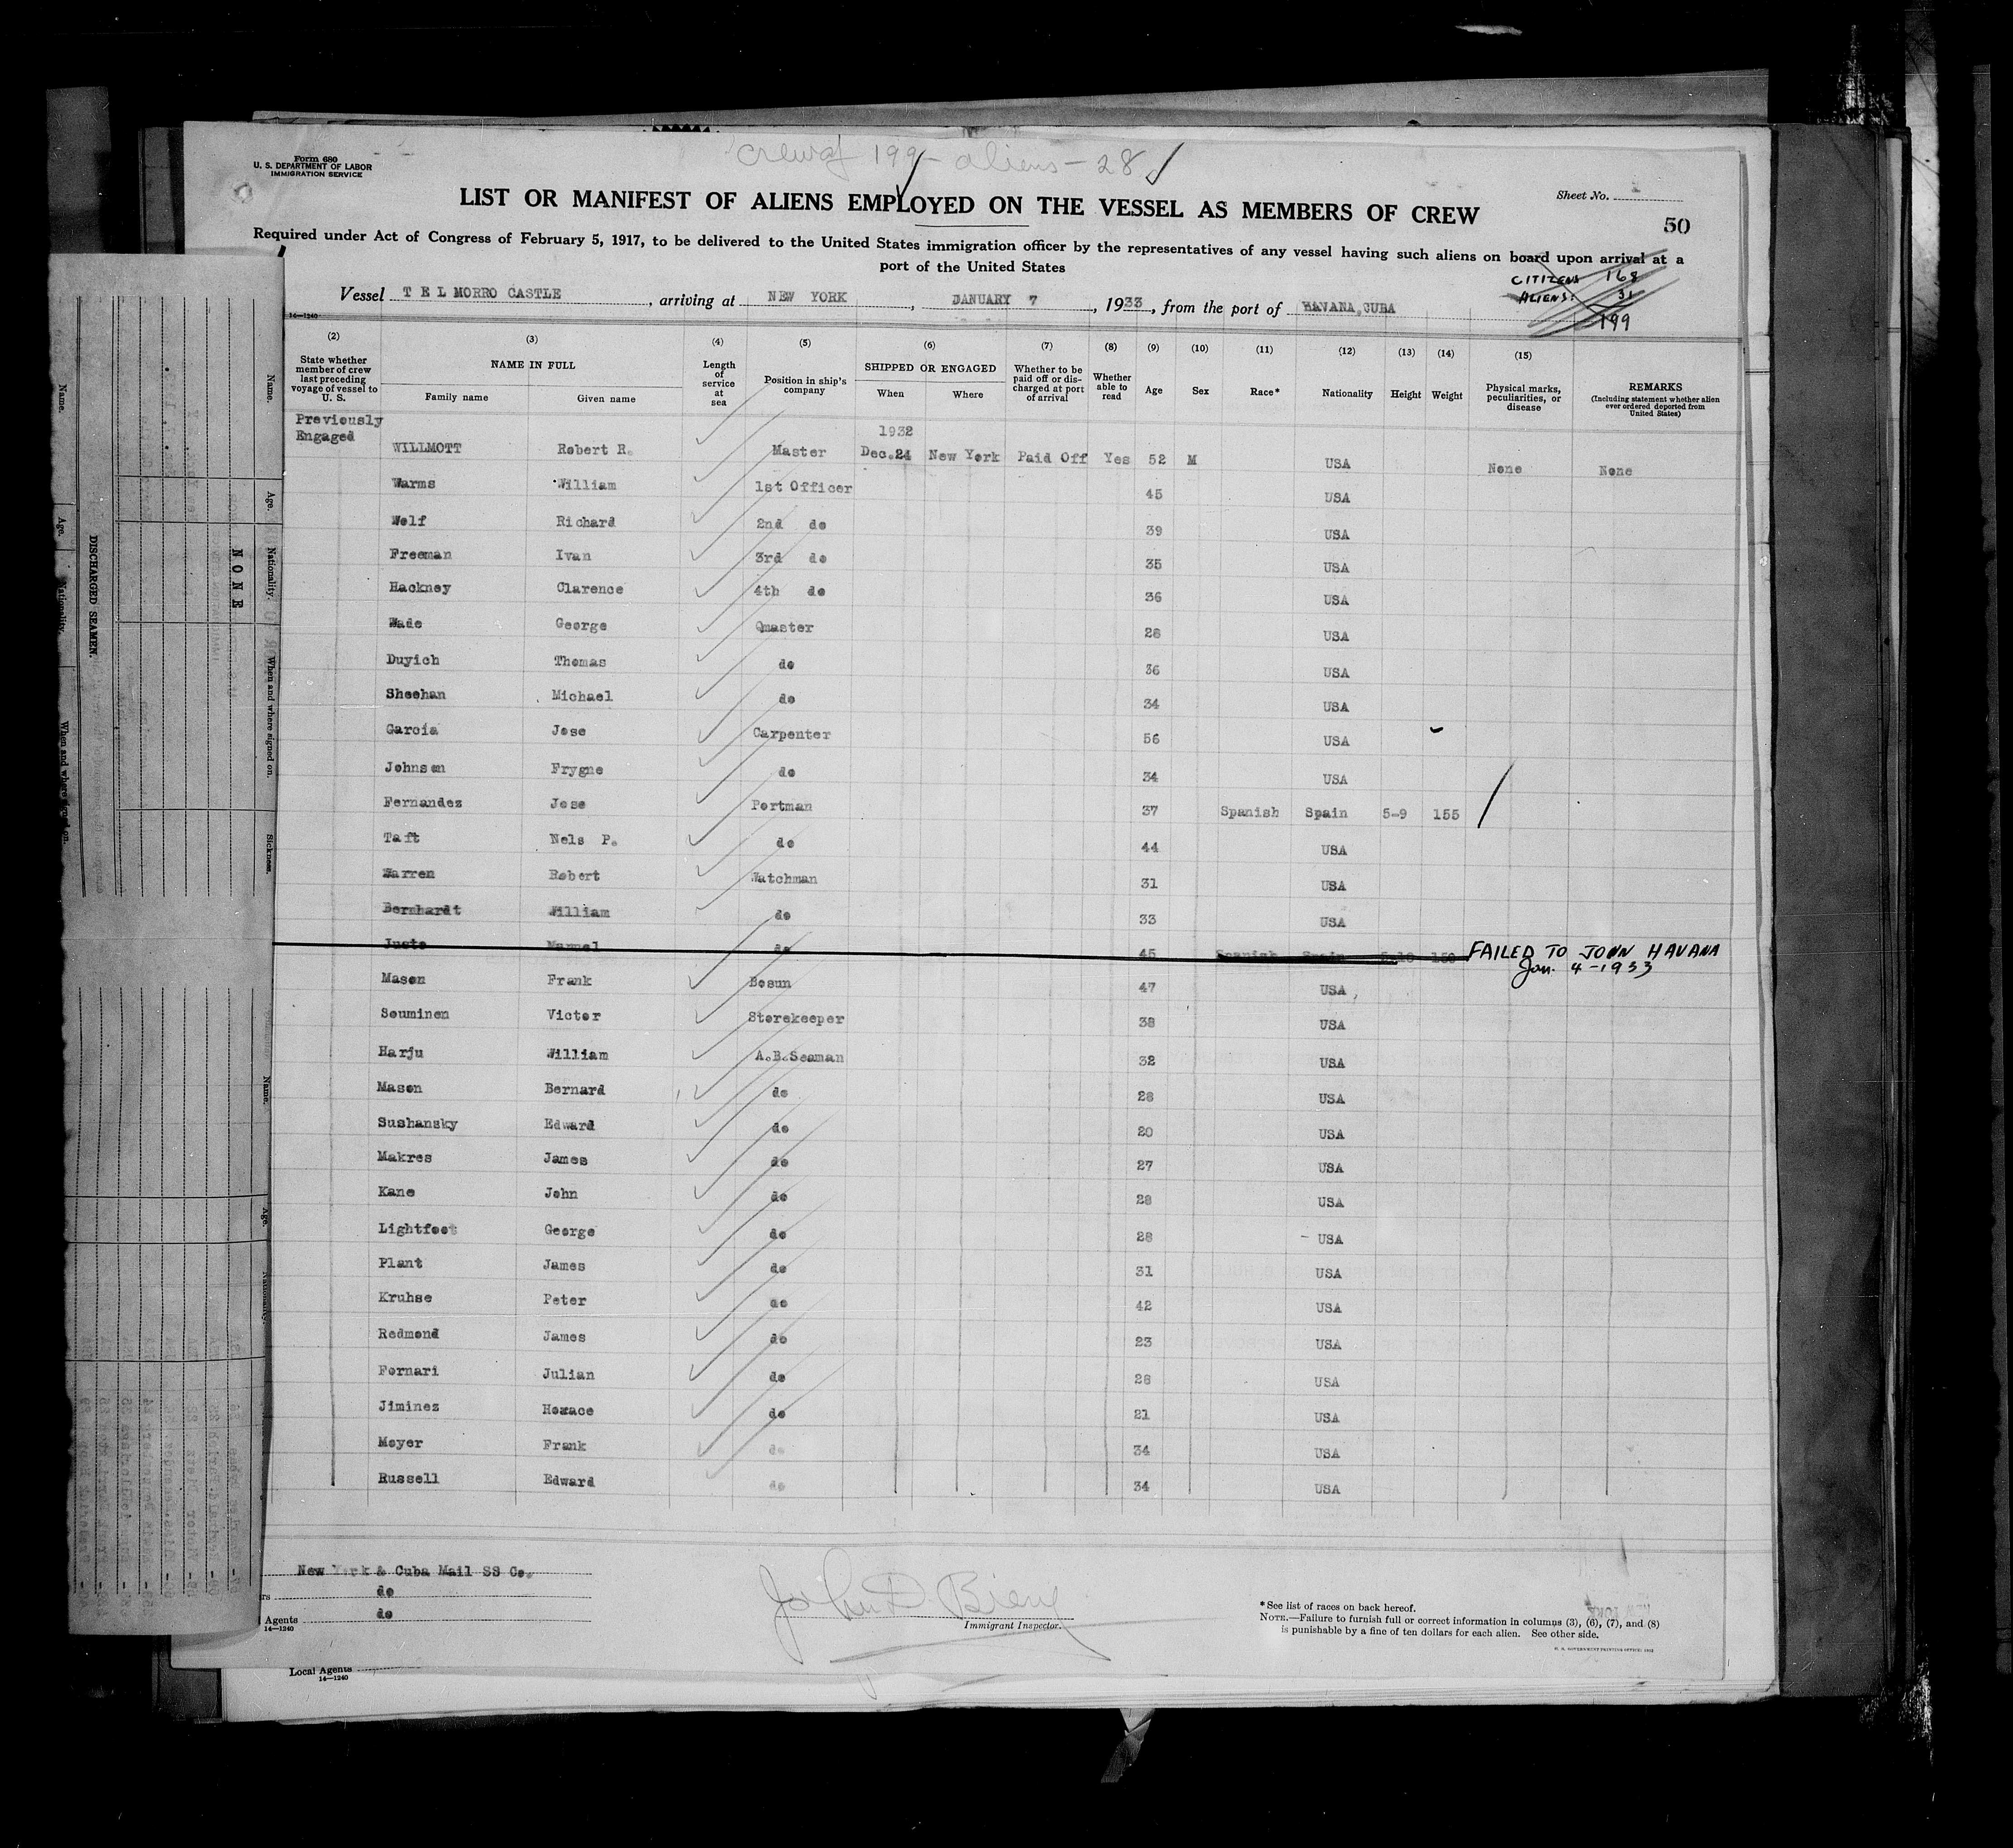 crew of 199 - aliens - 28
Form 680
U. S. DEPARTMENT OF LABOR
IMMIGRATION SERVICE
Sheet No.
LIST OR MANIFEST OF ALIENS EMPLOYED ON THE VESSEL AS MEMBERS OF CREW
50
Required under Act of Congress of February 5, 1917, to be delivered to the United States immigration officer by the representatives of any vessel having such aliens on board upon arrival at a
port of the United States
CITIZENS 168
ALIENS: 31
199
Vessel T E L MORRO CASTLE, arriving at NEW YORK, JANUARY 7, 1933, from the port of HAVANA, CUBA
14—1240
(2) (3) (4) (5) (6) (7) (8) (9) (10) (11) (12) (13) (14) (15)
State whether member of crew last preceding voyage of vessel to U. S. | NAME IN FULL Family name Given name | Length of service at sea | Position in ship's company | SHIPPED OR ENGAGED When Where | Whether to be paid off or discharged at port of arrival | Whether able to read | Age | Sex | Race* | Nationality | Height | Weight | Physical marks, peculiarities, or disease | REMARKS (Including statement whether alien ever ordered deported from United States)
Previously
Engaged
1932
WILLMOTT Robert R. Master Dec.24 New York Paid Off Yes 52 M USA None None
Warms William 1st Officer 45 USA
Wolf Richard 2nd do 39 USA
Freeman Ivan 3rd do 35 USA
Hackney Clarence 4th do 36 USA
Wade George Qmaster 28 USA
Duyich Thomas do 36 USA
Sheehan Michael do 34 USA
Garcia Jose Carpenter 56 USA
Johnsen Frygne do 34 USA
Fernandez Jose Portman 37 Spanish Spain 5-9 155
Taft Nels P. do 44 USA
Warren Robert Watchman 31 USA
Bernhardt William do 33 USA
Juste Manuel do 45 Spanish Spain 5-10 150 FAILED TO JOIN HAVANA
Jan. 4-1933
Mason Frank Bosun 47 USA
Souminen Victor Storekeeper 38 USA
Harju William A.B.Seaman 32 USA
Mason Bernard do 28 USA
Sushansky Edward do 20 USA
Makres James do 27 USA
Kane John do 28 USA
Lightfoot George do 28 USA
Plant James do 31 USA
Kruhse Peter do 42 USA
Redmond James do 23 USA
Fornari Julian do 28 USA
Jiminez Horace do 21 USA
Meyer Frank do 34 USA
Russell Edward do 34 USA
New York & Cuba Mail SS Co.
rs do
Agents do
14—1240
Immigrant Inspector.
*See list of races on back hereof.
NOTE.—Failure to furnish full or correct information in columns (3), (6), (7), and (8)
is punishable by a fine of ten dollars for each alien. See other side.
U. S. GOVERNMENT PRINTING OFFICE: 1932
Local Agents
14—1240
Name.
Age.
Nationality.
When and where signed on.
DISCHARGED SEAMEN.
NONE
Name.
Age.
Nationality.
When and where signed on.
Sickness.
Name.
Age.
Nationality.